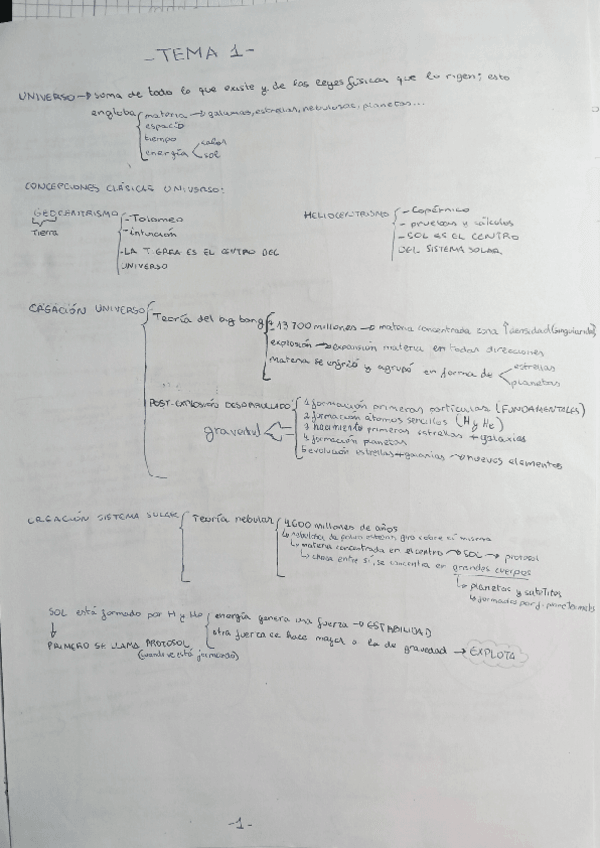 - TEMA 1 -
UNIVERSO → suma de todo lo que existe y de las leyes físicas que lo rigen; esto
engloba materia → galaxias, estrellas, nebulosas, planetas...
espacio
tiempo
energía calor
sol
CONCEPCIONES CLÁSICAS UNIVERSO:
GEOCENTRISMO - Tolomeo
Tierra - intuición
- LA TIERRA ES EL CENTRO DEL
UNIVERSO
HELIOCENTRISMO - Copérnico
- pruebas y cálculos
- SOL ES EL CENTRO
DEL SISTEMA SOLAR
CREACIÓN UNIVERSO Teoría del big bang 13700 millones → materia concentrada zona ↑densidad (singularidad)
explosión → expansión materia en todas direcciones
materia se enfrió y agrupó en forma de estrellas
planetas
POST-EXPLOSIÓN DESARROLLADO 1 formación primeras partículas (FUNDAMENTALES)
2 formación átomos sencillos (H y He)
gravedad 3 nacimiento primeras estrellas + galaxias
4 formación planetas
5 evolución estrellas + galaxias → nuevos elementos
CREACIÓN SISTEMA SOLAR Teoría nebular 4600 millones de años
nebulosa de giró sobre sí misma
materia concentrada en el centro → SOL → protosol
choca entre sí, se concentra en grandes cuerpos
planetas y satélites
formados por
SOL está formado por H y He energía genera una fuerza → ESTABILIDAD
otra fuerza se hace mayor a la de gravedad → EXPLOTA
PRIMERO SE LLAMA PROTOSOL
(cuando se está formando)
- 1 -